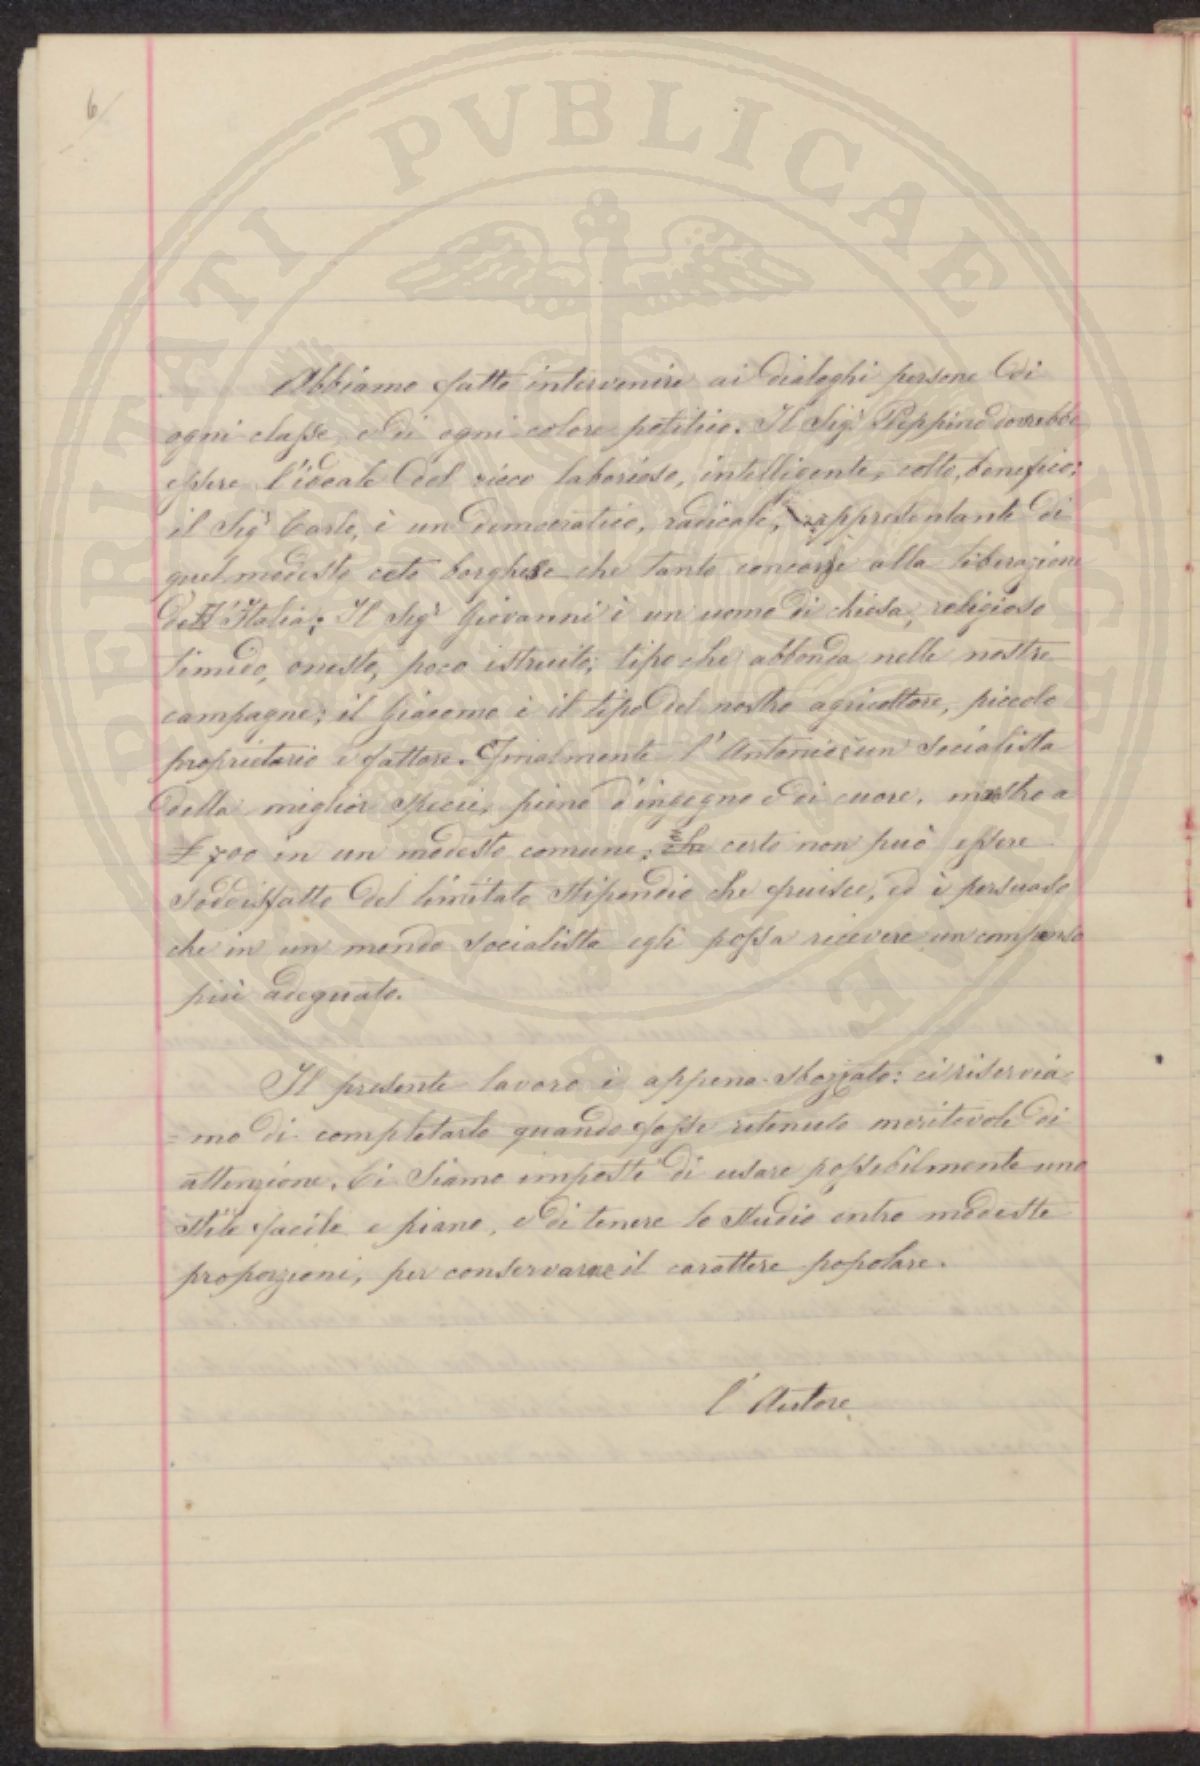 6
PROSPERITATI PVBLICAE AVGENDAE
Abbiamo fatto intervenire ai dialoghi persone di
ogni classe, e di ogni colore politico. Il Sigr Peppino dovrebbe
essere l'ideale del ricco laborioso, intelligente, colto, benefico;
il Sigr Carlo, è un democratico, radicale, rappresentante di
quel modesto ceto borghese che tanto concorse alla liberazione
dell'Italia; Il Sigr Giovanni è un uomo di chiesa, religioso
timido, onesto, poco istruito; tipo che abbonda nelle nostre
campagne; il Giacomo è il tipo del nostro agricoltore, piccolo
proprietario e fattore. Finalmente l'Antonio è un socialista
della miglior specie, pieno d'ingegno e di cuore, maestro a
£ 700 in un modesto comune; certo non può essere
soddisfatto del limitato stipendio che fruisce, ed è persuaso
che in un mondo socialista egli possa ricevere un compenso
più adeguato.
Il presente lavoro è appena sbozzato: ci riservia=
=mo di completarlo quando fosse ritenuto meritevole di
attenzione. Ci siamo imposti di usare possibilmente uno
stile facile e piano, e di tenere lo studio entro modeste
proporzioni, per conservare il carattere popolare.
l'Autore